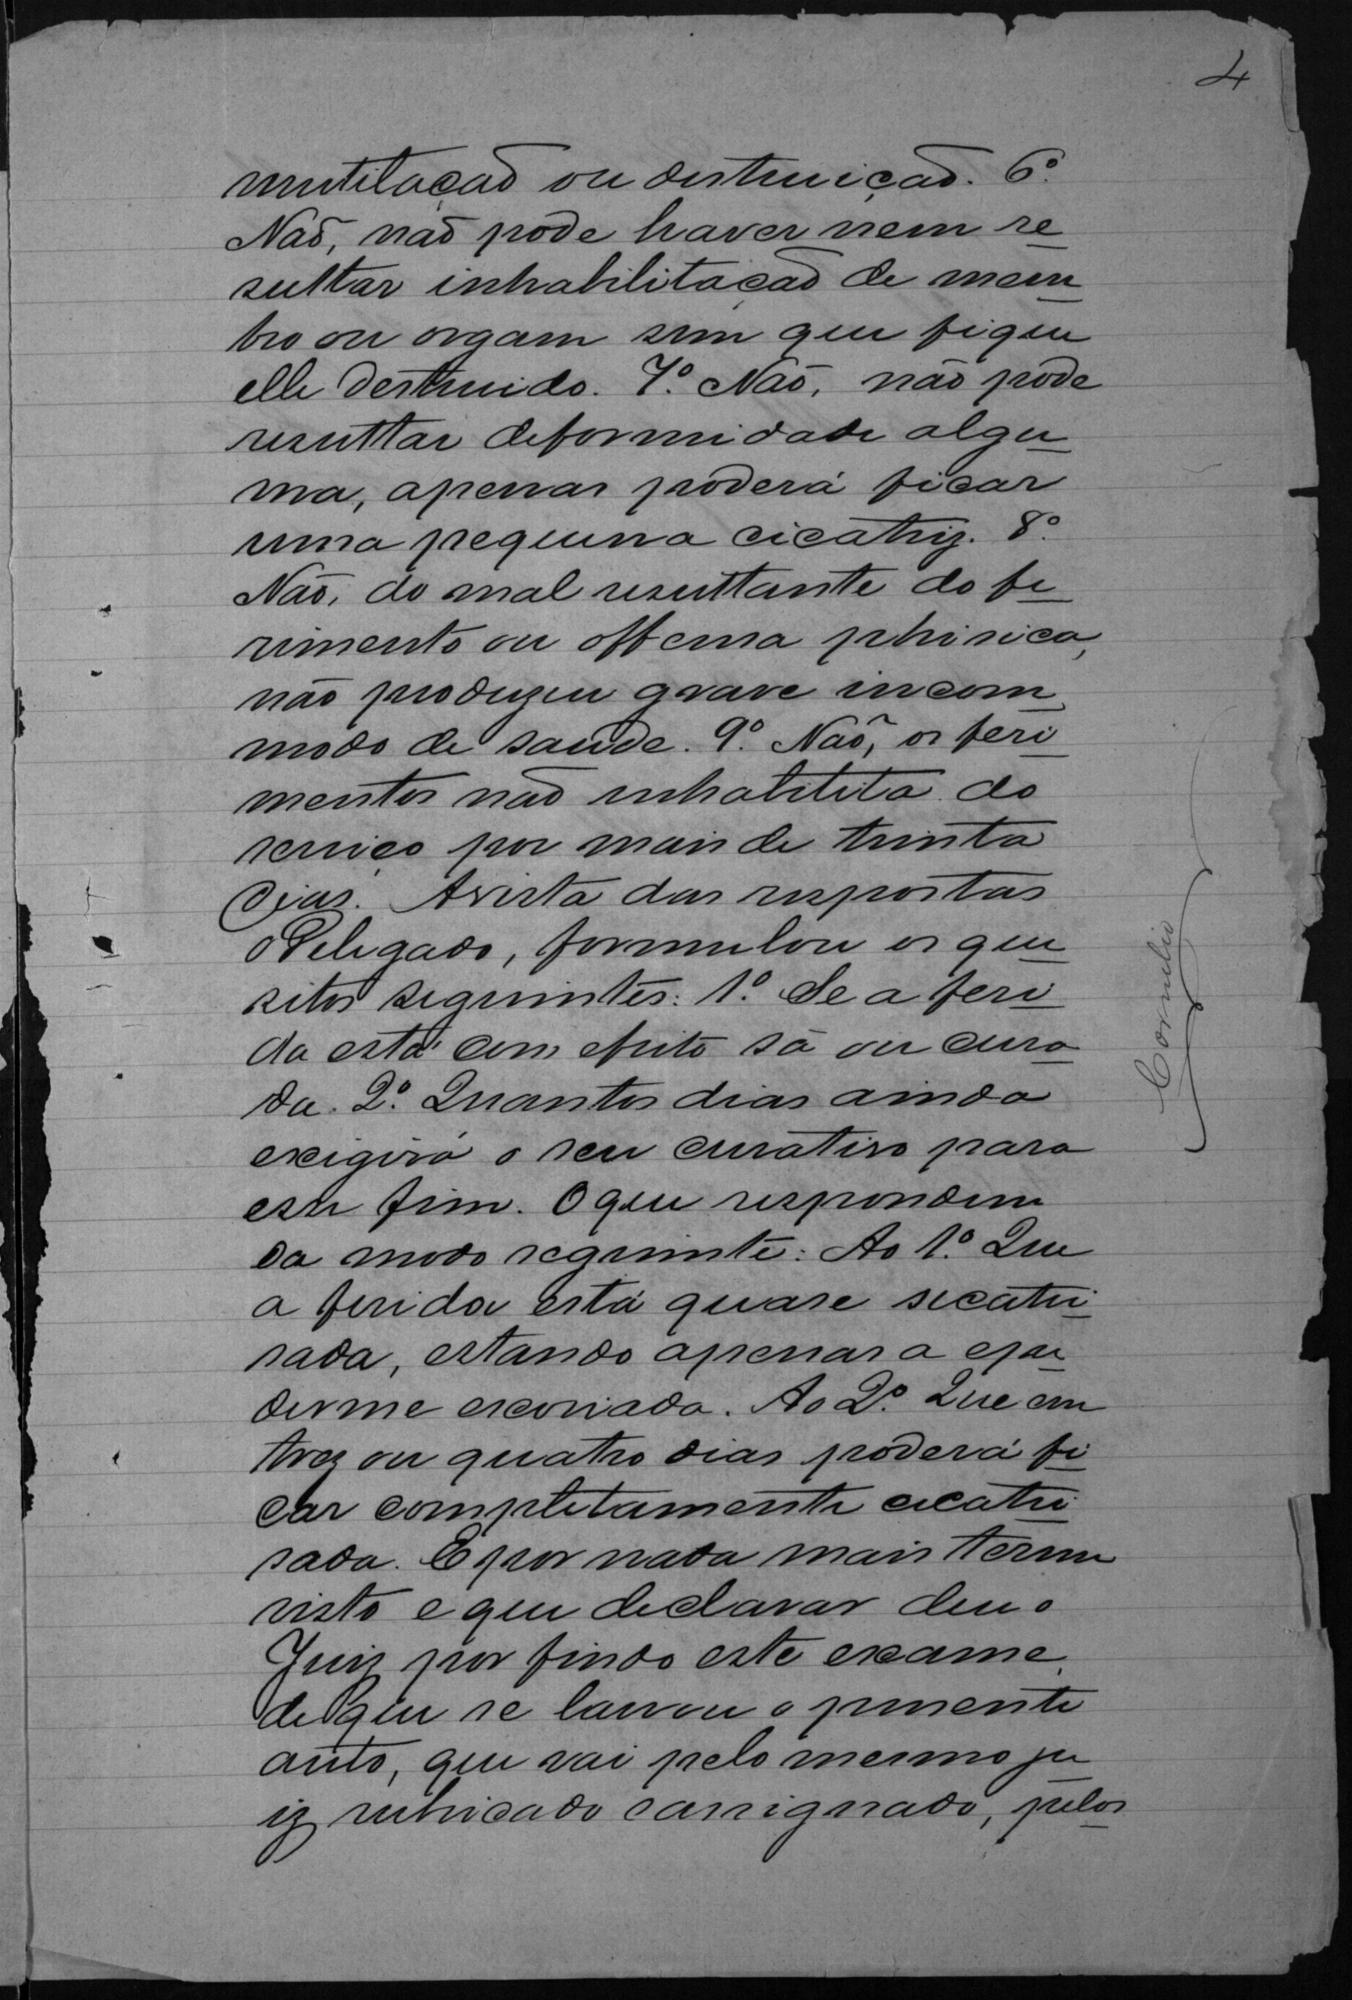 4
mutilação ou destruição. 6º
Não, não pode haver nem re
sultar inhabilitação de mem
bro ou orgam sem que fique
elle destruido. 7º Não, não pode
resultar deformidade algu
ma, apenas poderá ficar
uma pequena cicatriz. 8º
Não, do mal resultante do fe
rimento ou offensa phisica,
não produzeu grave incom
modo de saude. 9º Não, os feri
mentos não inhabilita do
serviço por mais de trinta
dias. Avista das respostas
o Delegado, formulou os que
sitos seguintes: 1º Se a feri
da está com efeito sã ou cura
da. 2º Quantos dias ainda
exigirá o seu curativo para
esse fim. O que responderam
da modo seguinte: Ao 1º Que
a ferida está quase secatri
sada, estando apenas a epi
derme escoriada. Ao 2º Que em
trez ou quatro dias poderá fi
car completamente cicatri
sada. E por nada mais terem
visto e que declarar deu o
Juiz por findo este exame
de que se lavrou o presente
auto, que vai pelo mesmo ju
iz rubricado e assignado, pelos
Cornelio